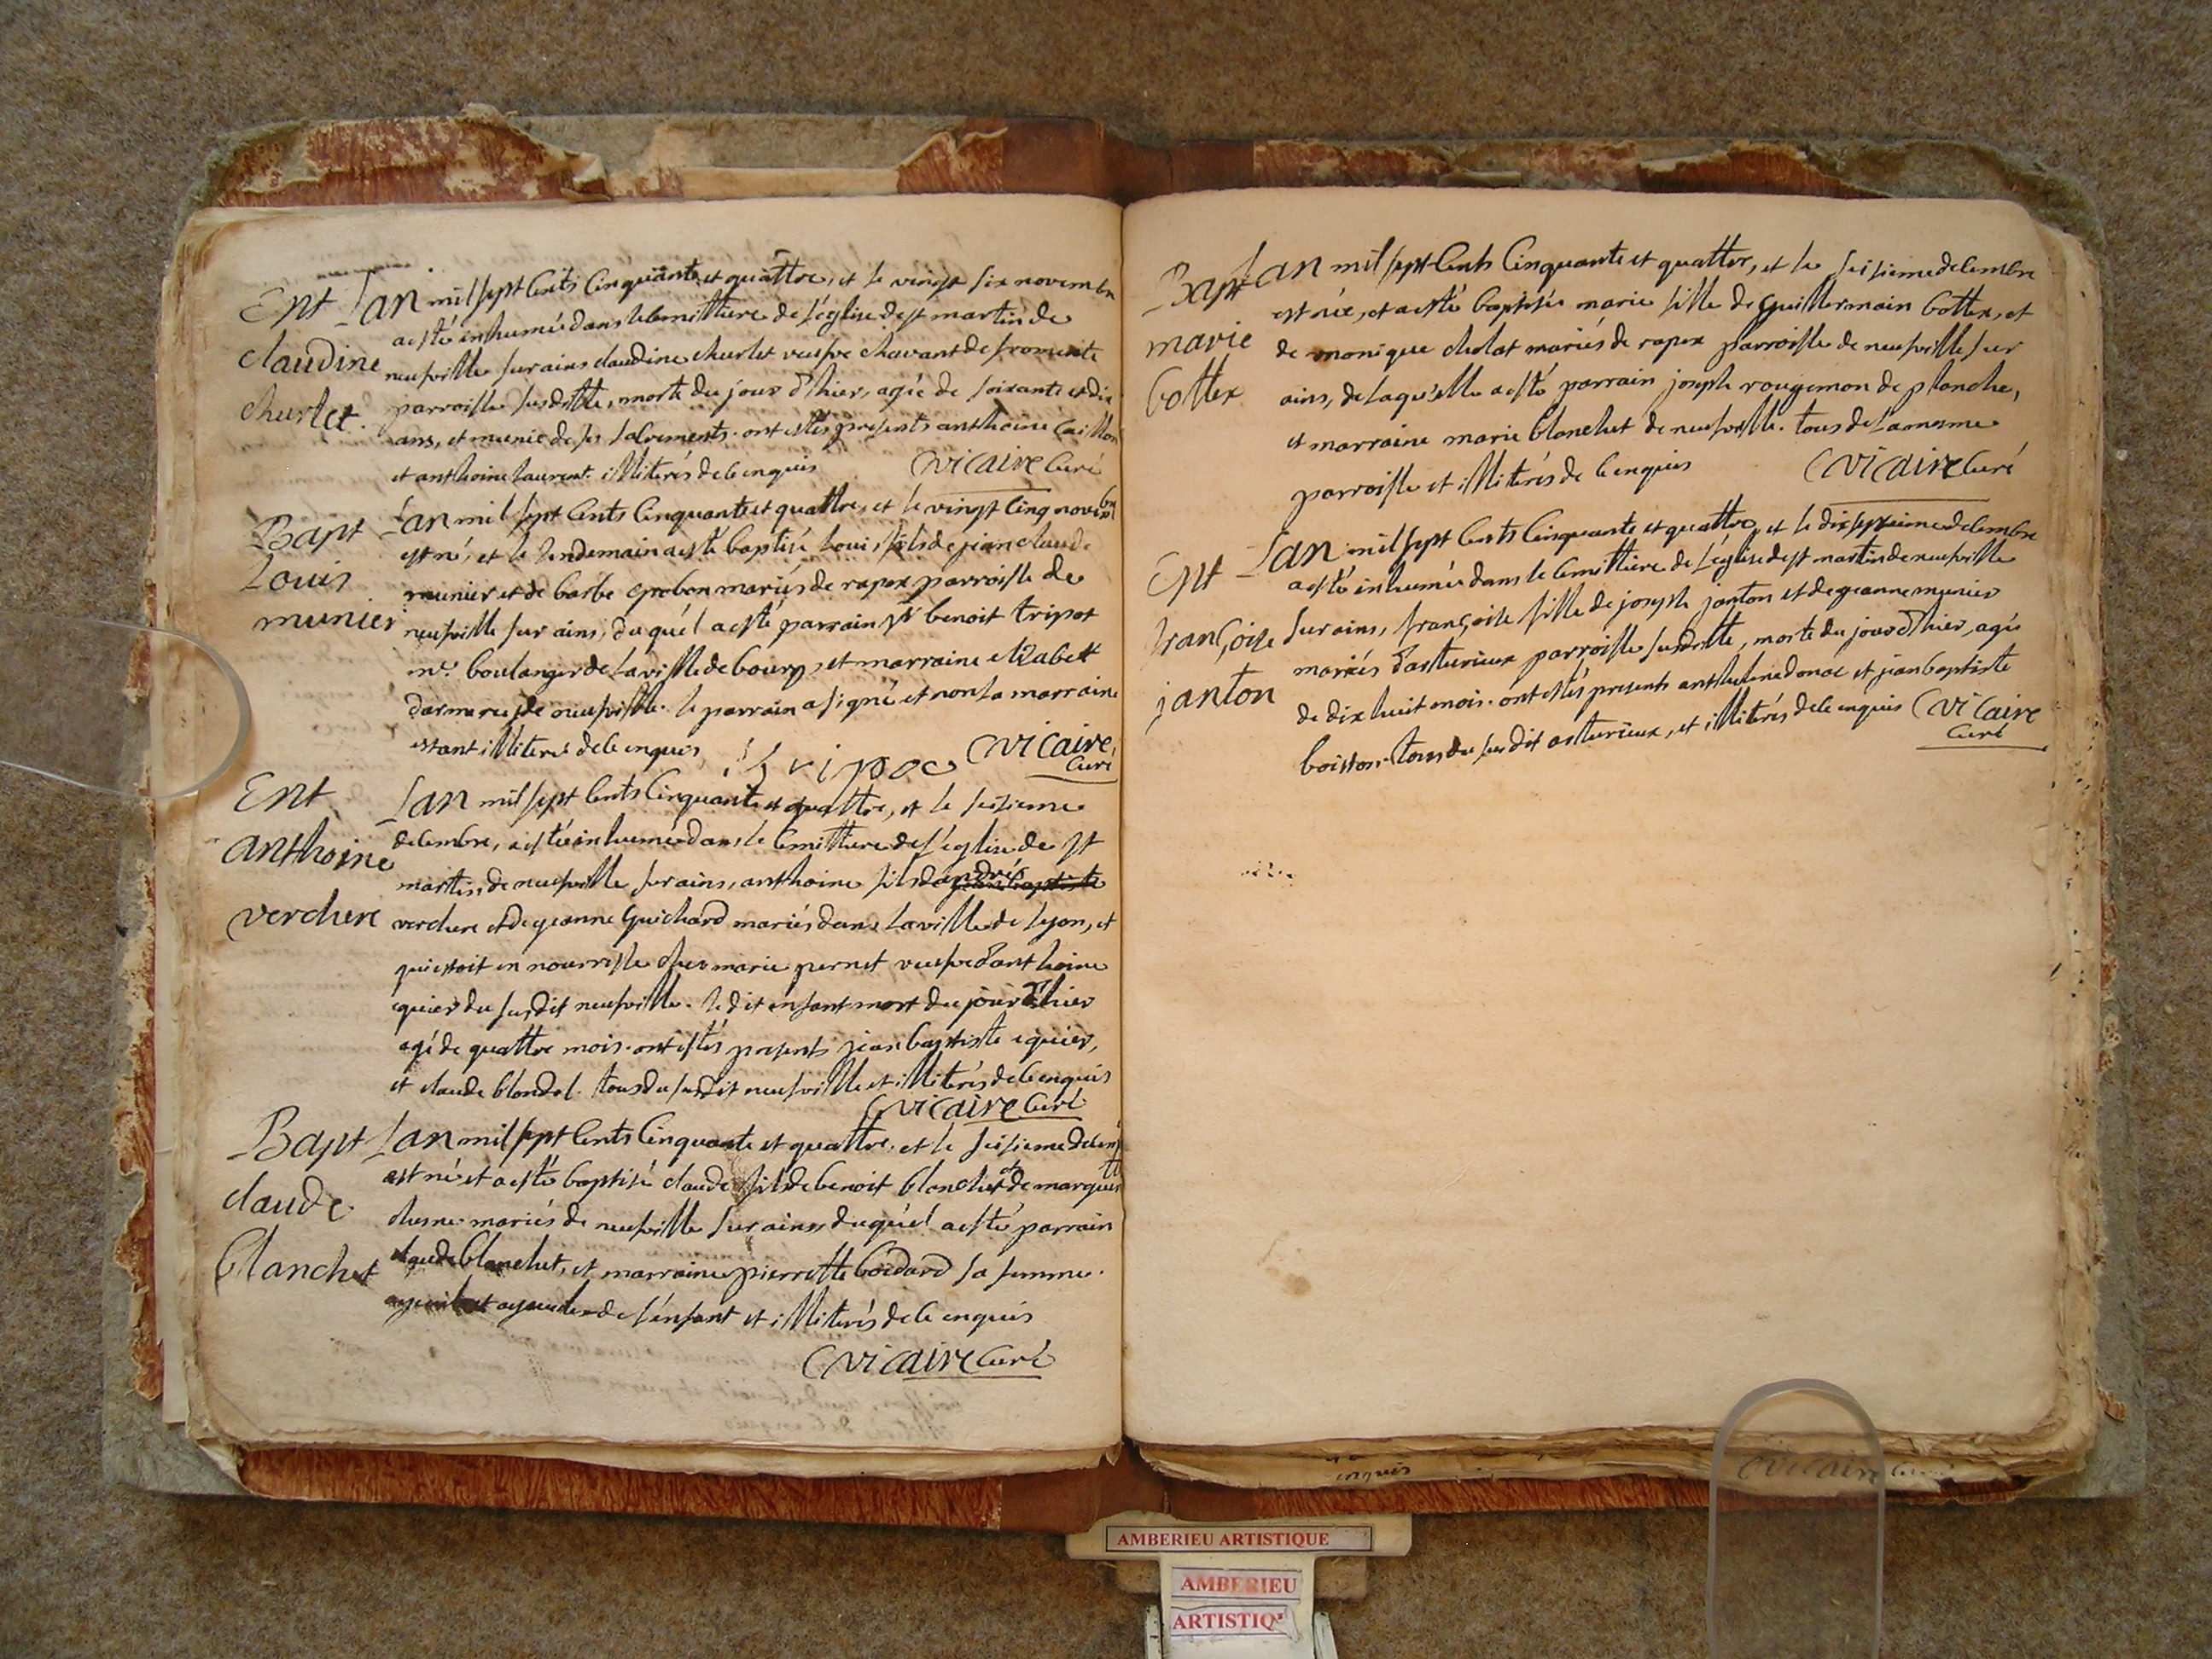 Ent
claudine
churlet.
Lan mil sept cents cinquante et quattre, et le vingt six novembre
a esté inhumée dans le cemittiere de l'église de st martin de
neufville sur ains claudine churlet veufve chavant de fromente
parroisse susditte, morte du jour d'hier, agée de soixante et dix
ans, et munie de ses sacrements. ont estés presents anthoine Caillon
et anthoine laurent. illiterés de ce enquis
Vicaire Curé
Bapt
Louis
munier
Lan mil sept cents cinquante et quattre, et le vingt cinq novembre
est né, et le lendemain a esté baptisé Louis fils de jean claude
munier et de barbe grobon mariés de rapex parroisse de
neufville sur ains, duquel a esté parrain sr benoit tripot
me. boulanger de la ville de bourg, et marraine elizabett
de neufville. le parrain a signé et non la marraine
estant illiteré de ce enquis
Vicaire
Curé
Ent
anthoine
verchere
Lan mil sept cents cinquante et quattre, et le seisieme
decembre, a esté inhumé dans le cemittiere de l'eglise de st
martin de neufville sur ains, anthoine fils d'andré
verchere et de jeanne Guichard mariés dans la ville de lyon, et
qui estoit en nourrisse chez marie pernet veufve d'anthoine
equier du susdit neufville. le dit enfant mort du jour d'hier
agé de quattre mois. ont estés presents jean baptiste equier,
et claude blondel. tous du susdit neufville et illiterés de ce enquis
Vicaire Curé
Bapt
claude
blanchet
Lan mil sept cents cinquante et quattre, et le seisieme decem
est né et a esté baptisé claude fils de benoit blanchet et de marguerite
chesne mariés de neufville sur ains, duquel a esté parrain
claude blanchet, et marraine pierrette Goddard sa femme.
de l'enfant et illiterés de ce enquis
Vicaire Curé
Bapt
marie
Cottex
Lan mil sept cents cinquante et quatter, et le seisieme decembre
est née, et a esté baptisée marie fille de Guillermain Cottex, et
de monique cholat mariés de rapex parroisse de neufville sur
ains, de laquelle a esté parrain joseph rougemon de planche,
et marraine marie blanchet de neufville. tous de la mesme
parroisse et illiterés de ce enquis
Vicaire Curé
Ent
françoise
janton
Lan mil sept cents cinquante et quattre, et le dix septieme decembre
a esté inhumée dans le cemittiere de l'eglise de st martin de neufville
sur ains, françoise fille de joseph janton et de jeanne munier
mariés d'arturieux parroisse susditte, morte du jour d'hier, agée
de dix huit mois. ont estés presents anthelme donac et jean baptiste
boisson. tous du susdit arturieux, et illiterés de ce enquis
Vicaire
Curé
enquis
Vicaire
AMBERIEU ARTISTIQUE
AMBERIEU
ARTISTIQ